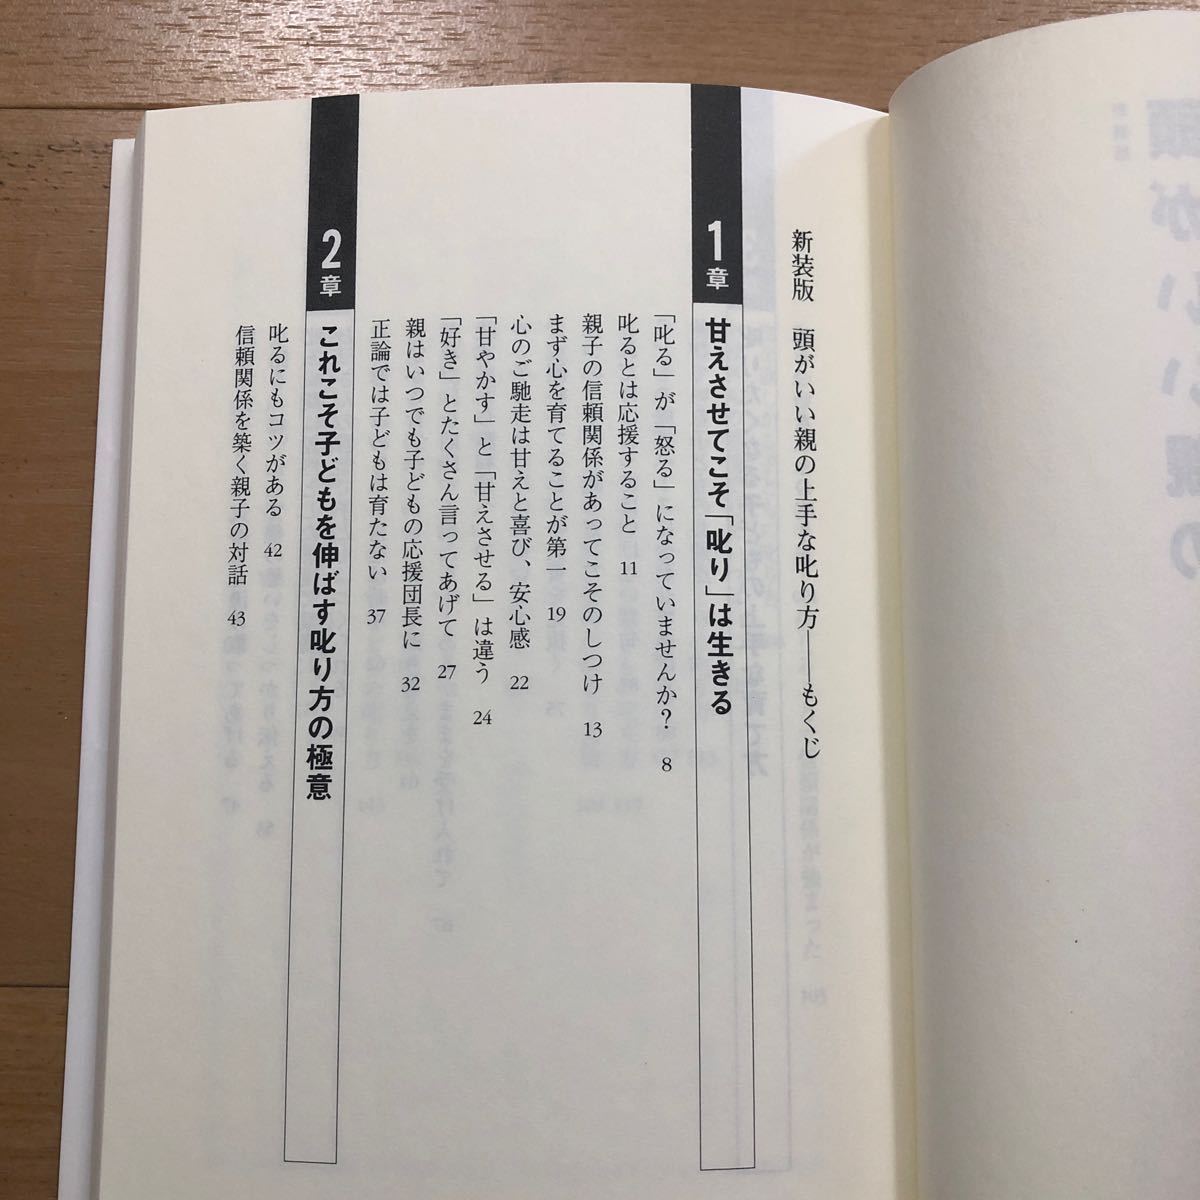 新装版　頭がいい親の上手な叱り方――もくじ
1章　甘えさせてこそ「叱り」は生きる
「叱る」が「怒る」になっていませんか？　8
叱るとは応援すること　11
親子の信頼関係があってこそのしつけ　13
まず心を育てることが第一　19
心のご馳走は甘えと喜び、安心感　22
「甘やかす」と「甘えさせる」は違う　24
「好き」とたくさん言ってあげて　27
親はいつでも子どもの応援団長に　32
正論では子どもは育たない　37
2章　これこそ子どもを伸ばす叱り方の極意
叱るにもコツがある　42
信頼関係を築く親子の対話　43